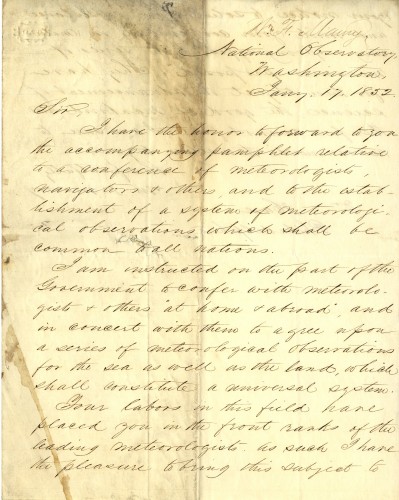 M. F. Maury
National Observatory,
Washington,
Jany. 17. 1852.
Sir
I have the honor to forward to you
the accompanying pamphlet relative
to a conference of meteorologists,
navigators & others, and to the estab-
lishment of a system of meteorologi-
cal observations which shall be
common to all nations.
I am instructed on the part of the
Government to confer with meteorolo-
gists & others "at home & abroad", and
in concert with them to agree upon
a series of meteorological observations
for the sea as well as the land, which
shall constitute a universal system.
Your labors in this field have
placed you in the front ranks of the
leading meteorologists. as such I have
the pleasure to bring this subject to